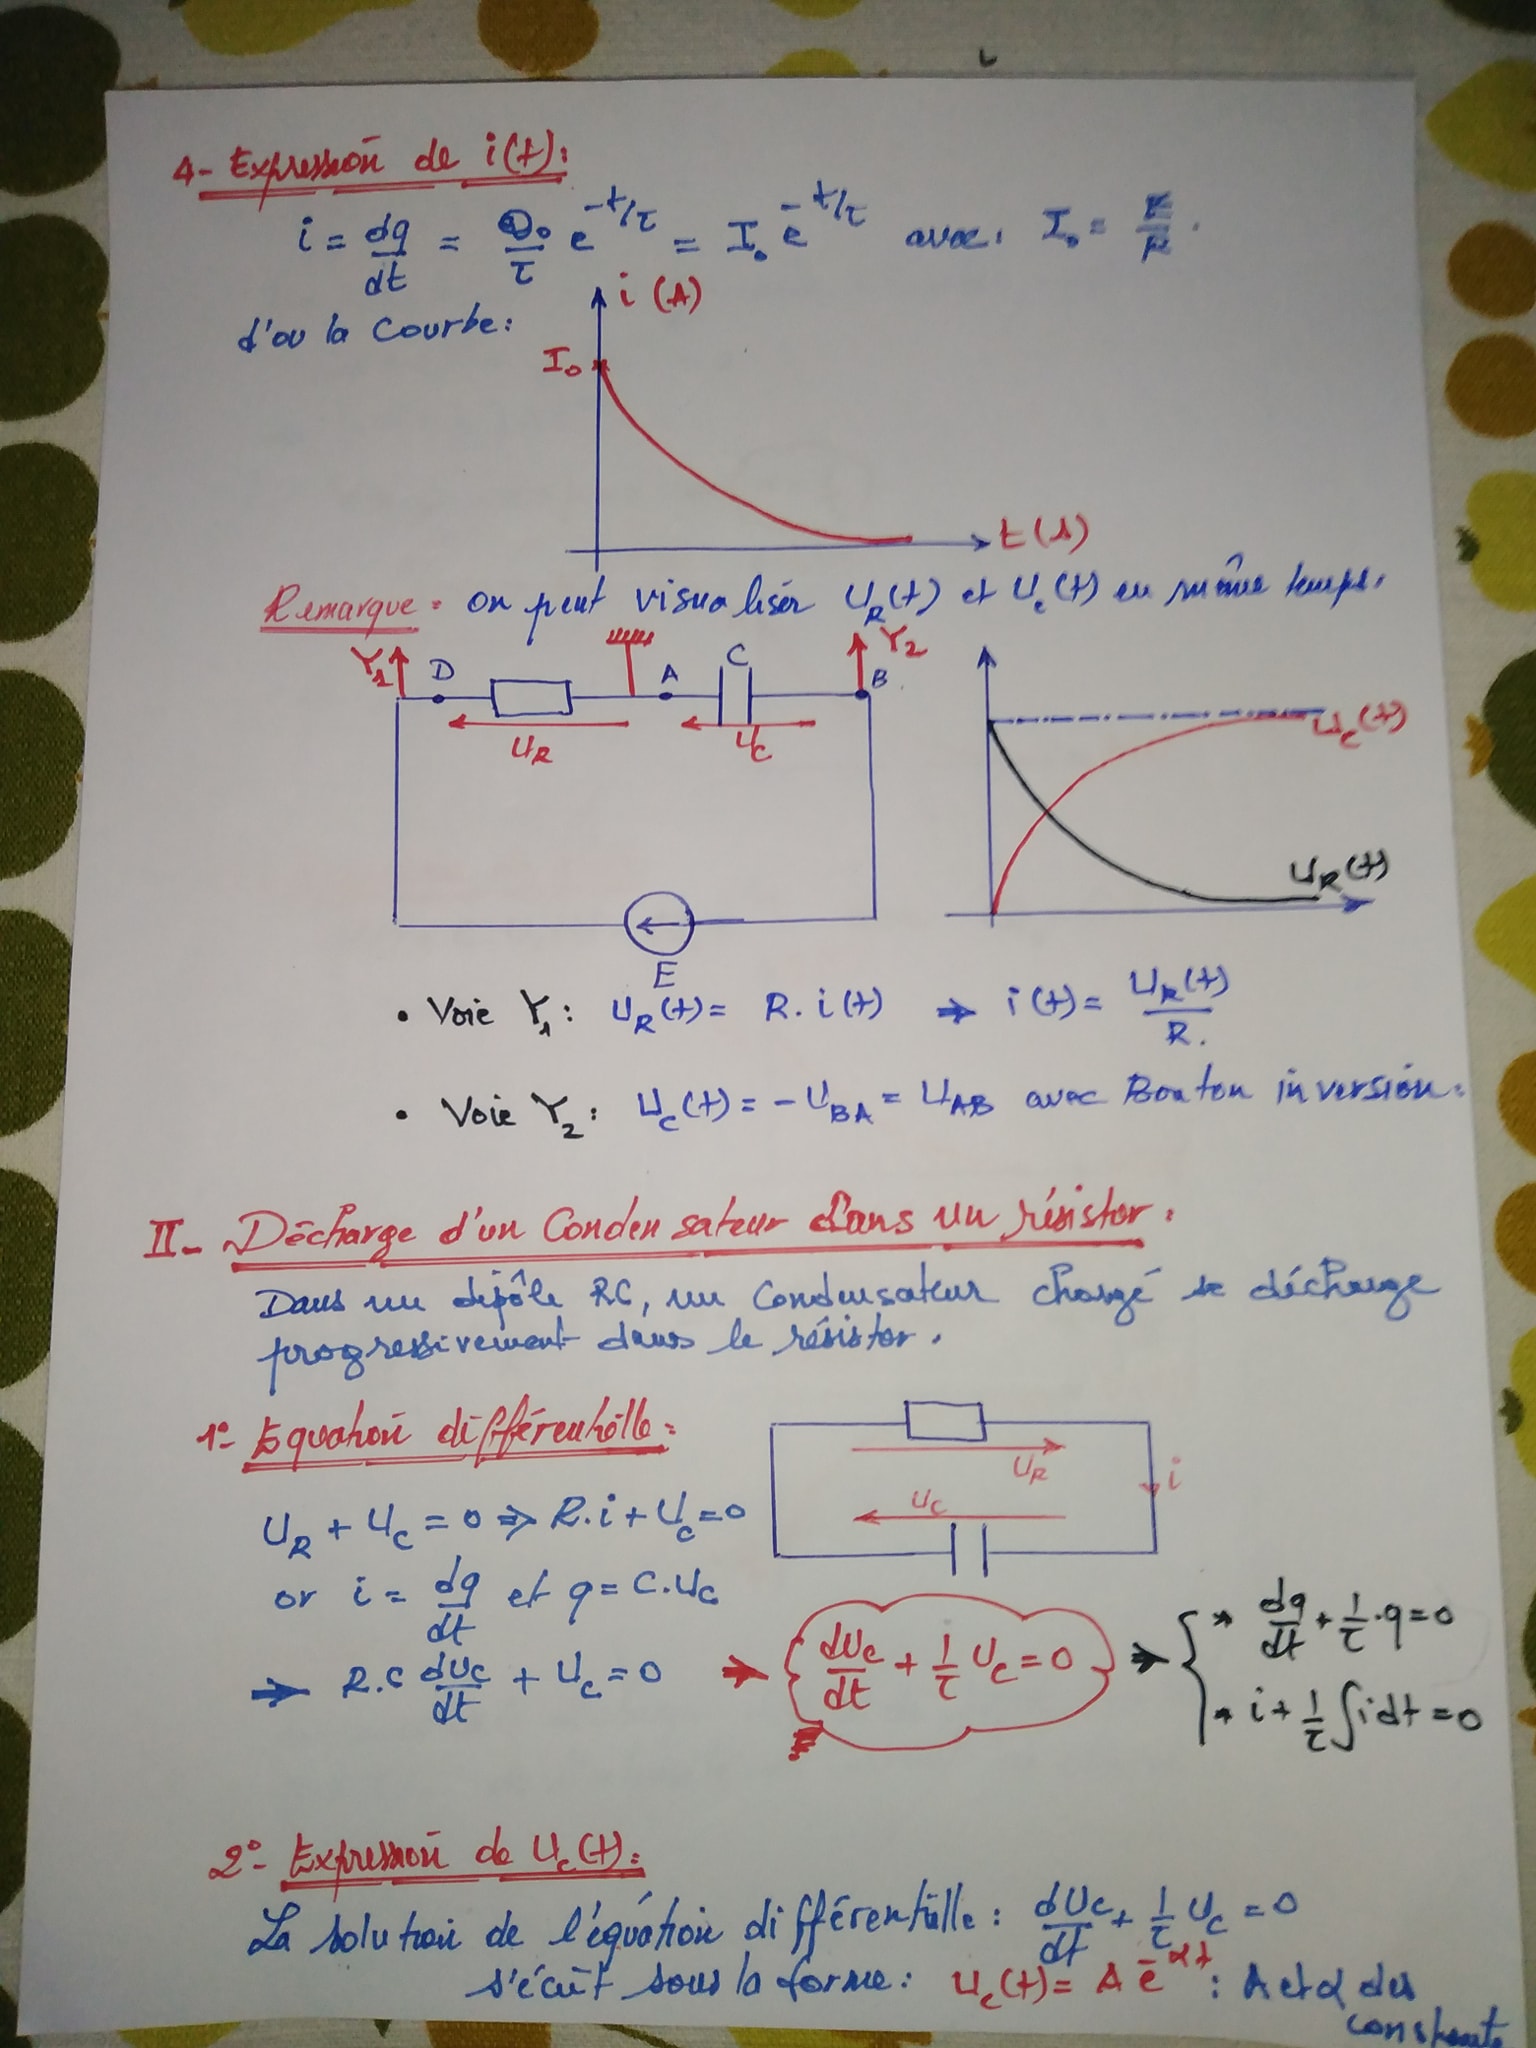 4- Expression de i(t):
i = dq/dt = Q₀/τ e^(-t/τ) = I₀ e^(-t/τ) avec: I₀ = E/R.
d'ou la Courbe:
i (A)
I₀
t(s)
Remarque: on peut visualiser U_R(t) et U_c(t) en même temps.
Y₁ D A C B Y₂
U_R U_C
E
U_c(t)
U_R(t)
• Voie Y₁: U_R(t) = R.i(t) ⇒ i(t) = U_R(t)/R.
• Voie Y₂: U_c(t) = -U_BA = U_AB avec Bouton inversion.
II- Décharge d'un Condensateur dans un résistor.
Dans un dipôle RC, un Condensateur chargé se décharge
progressivement dans le résistor.
1°- Equation différentielle:
U_R
i
U_C
U_R + U_C = 0 ⇒ R.i + U_C = 0
or i = dq/dt et q = C.U_C
⇒ R.C dU_C/dt + U_C = 0 ⇒ dU_C/dt + 1/τ U_C = 0 ⇒ { * dq/dt + 1/τ.q = 0
* i + 1/τ ∫i dt = 0
2°- Expression de U_C(t):
La solution de l'équation différentielle: dU_C/dt + 1/τ U_C = 0
s'écrit sous la forme: U_C(t) = A e^(-αt): A et α des
constante